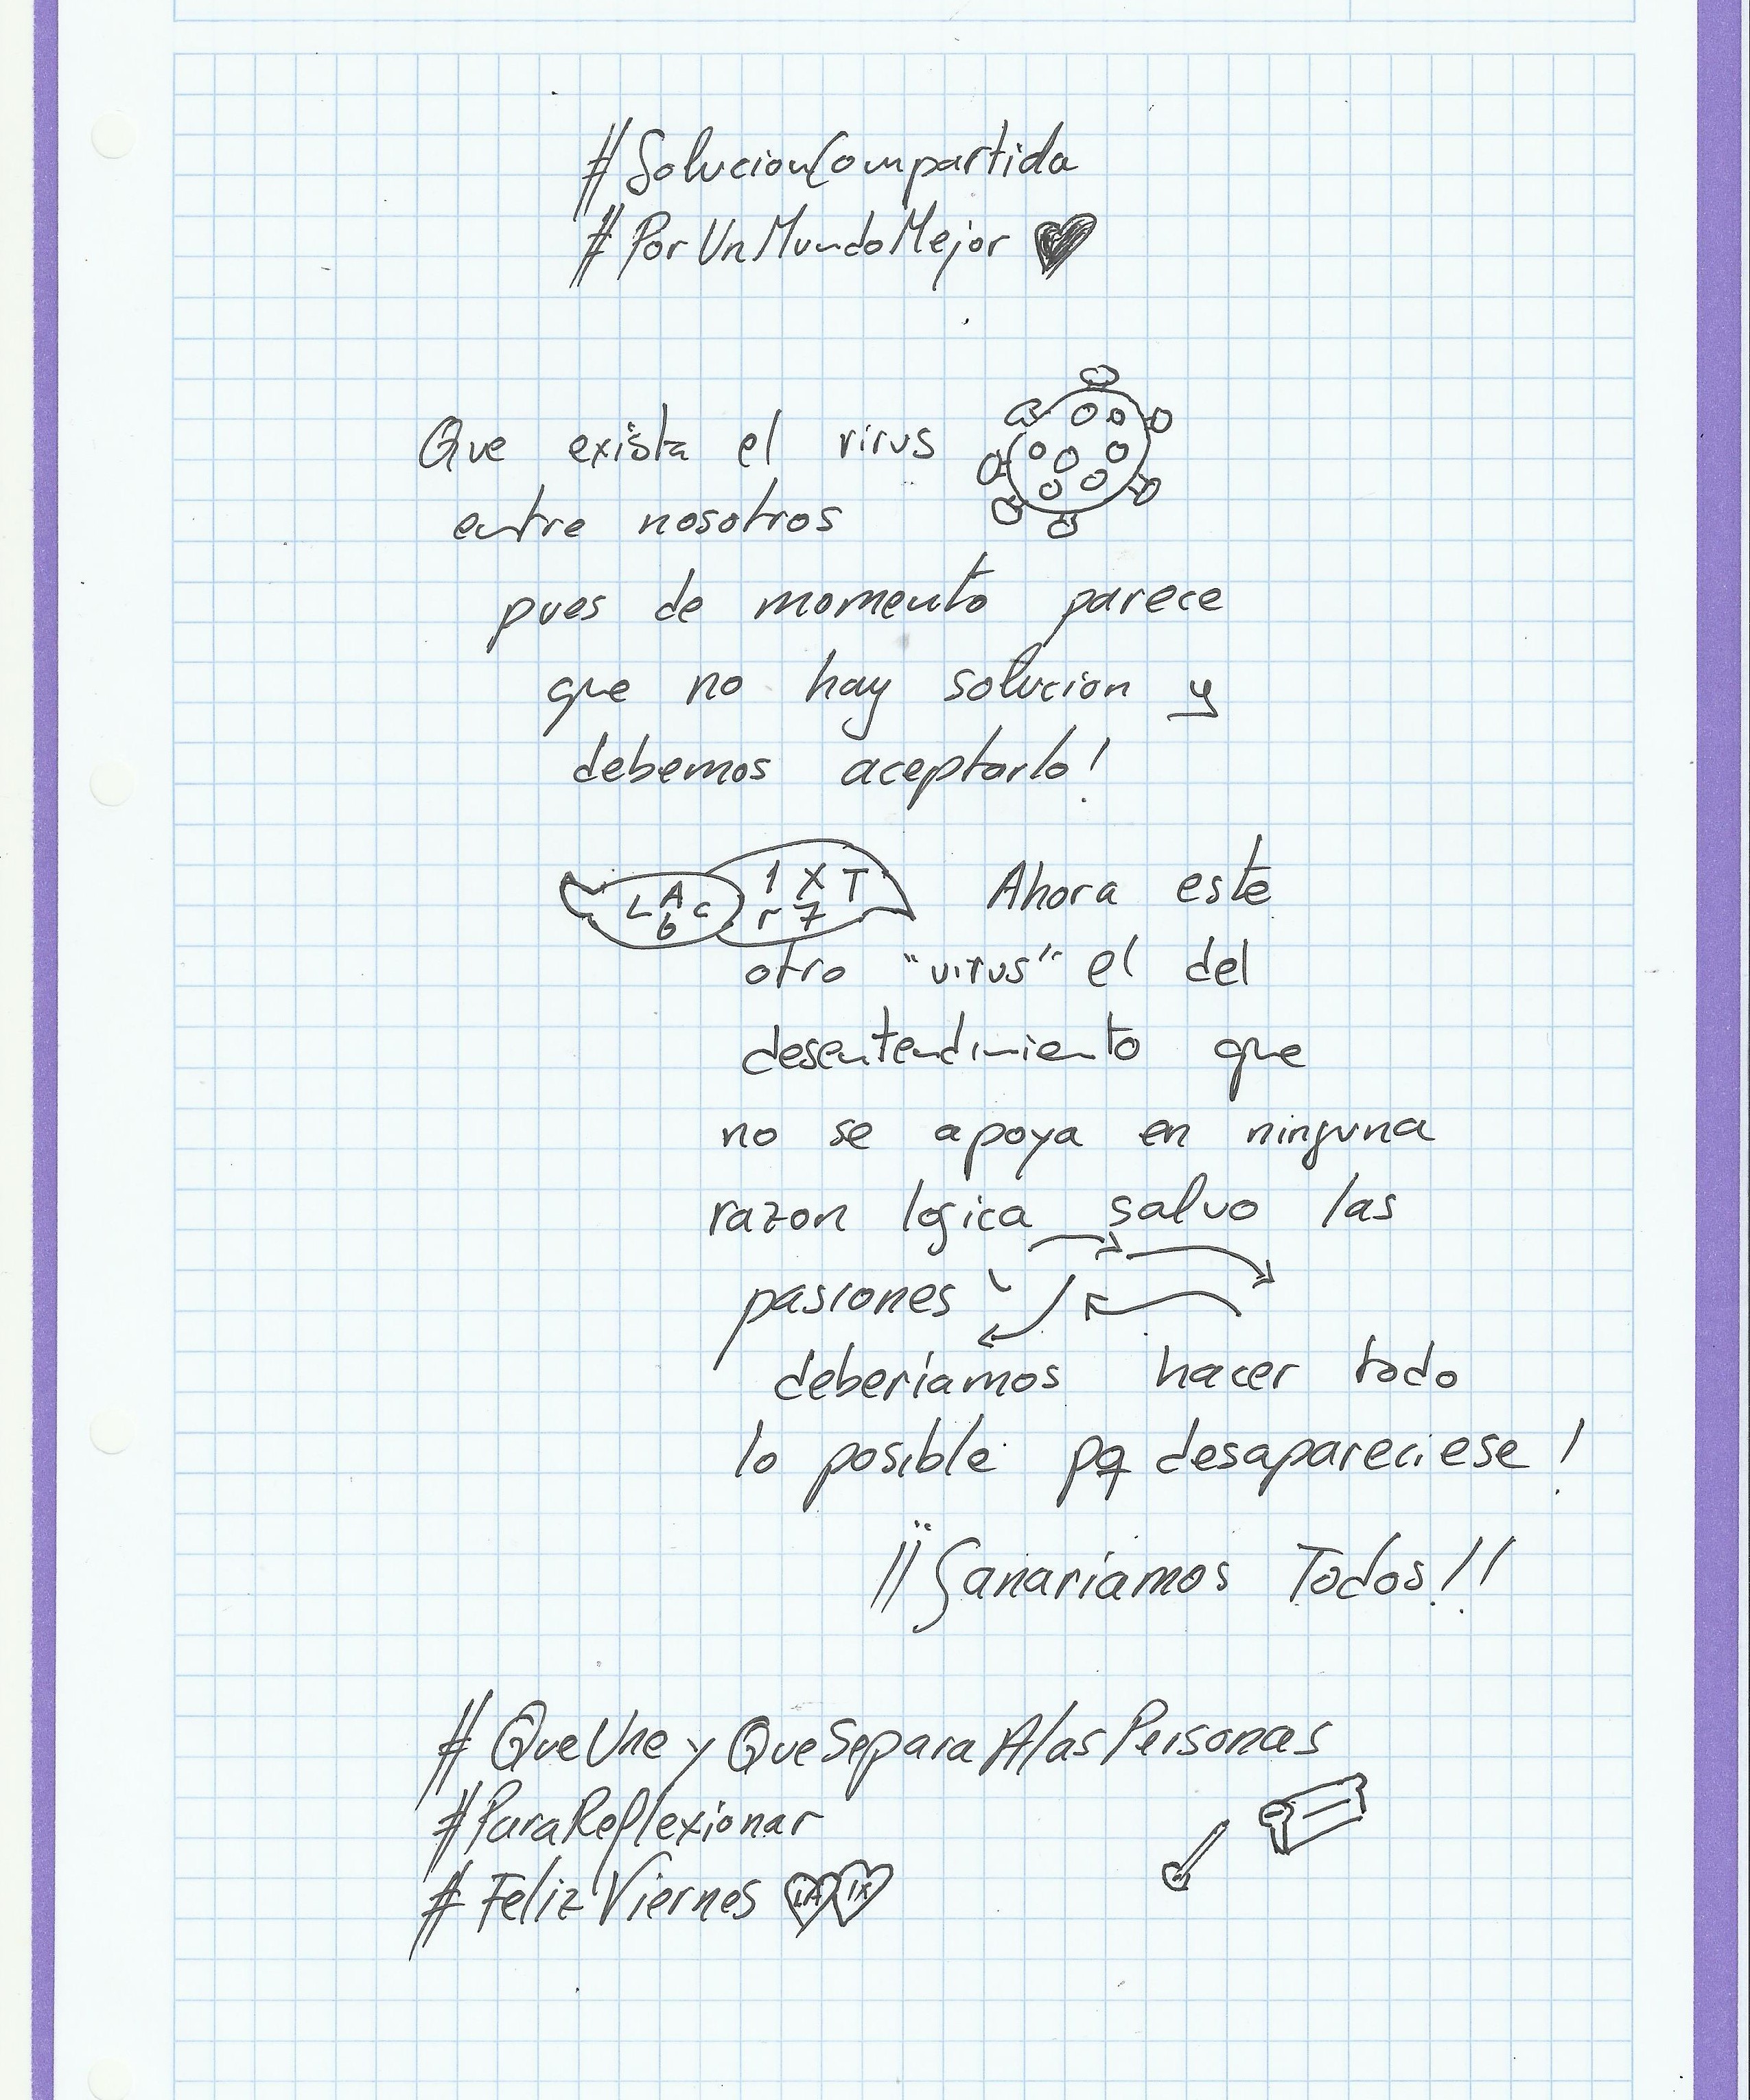 #SolucionCompartida
#PorUnMundoMejor
Que exista el virus
entre nosotros
pues de momento parece
que no hay solucion y
debemos aceptarlo!
L A b c 1 X T r 7 Ahora este
otro "virus" el del
desentendimiento que
no se apoya en ninguna
razon logica salvo las
pasiones
deberíamos hacer todo
lo posible pq desapareciese!
¡¡Ganaríamos Todos!!
#QueUneyQueSeparaAlasPersonas
#ParaReflexionar
#FelizViernes